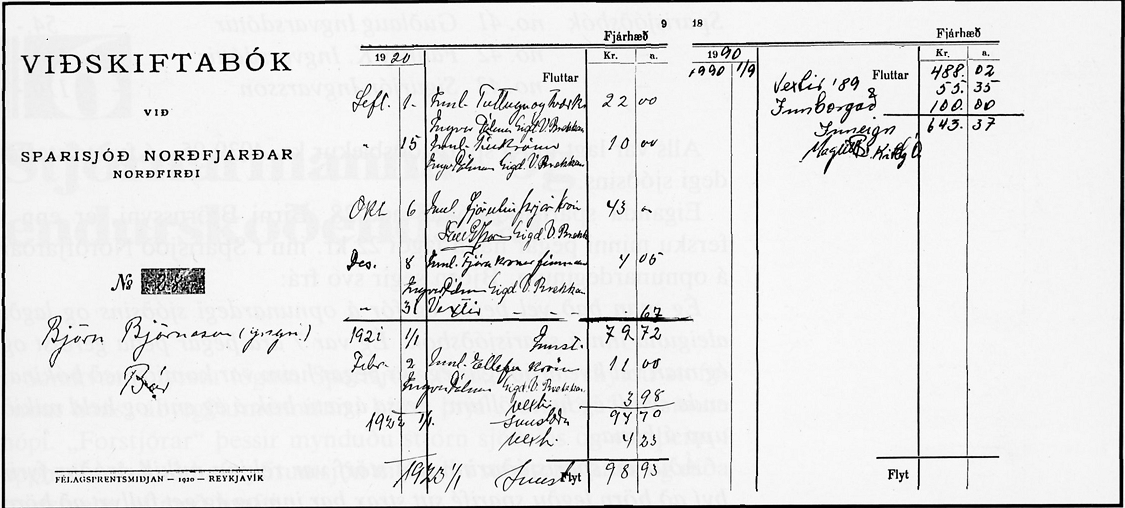 VIÐSKIFTABÓK
VIÐ
SPARISJÓÐ NORÐFJARÐAR
NORÐFIRÐI
№
Björn Björnsson (yngri)
FÉLAGSPRENTSMIÐJAN — 1920 — REYKJAVÍK
9
Fjárhæð
1920 Kr. a.
Fluttar
Sept. 1 - Innl. Tuttuguogtvær kr 22 00
Ingvar Pálmas Sigd. V. Brekkan
" 15 Innl. Tíukrónur 10 00
Ingv Pálmas Sigd. V. Brekkan
Okt 6 Innl. fjörutíu þrjár krón 43 "
Sigd. V. Brekkan
Des. 8 Innl. Fjórar krónur fimm au 4 05
Ingvar Pálmas Sigd. V. Brekkan
— 31 Vextir - - - 67
1921 1/1 Innst. 79 72
Febr. 2 Innl. Ellefu krón 11 00
Ingvar Pálmas Sigd. V. Brekkan
Vextir 3 98
1922 1/1. Innstæða 94 70
Vextir 4 23
1923 1/1 Innst Flyt 98 93
18
Fjárhæð
1990 Kr. a.
1990 1/9 Fluttar 488. 02
Vextir '89 55. 35
Innborgað 100. 00
Inneign 643. 37
Flyt